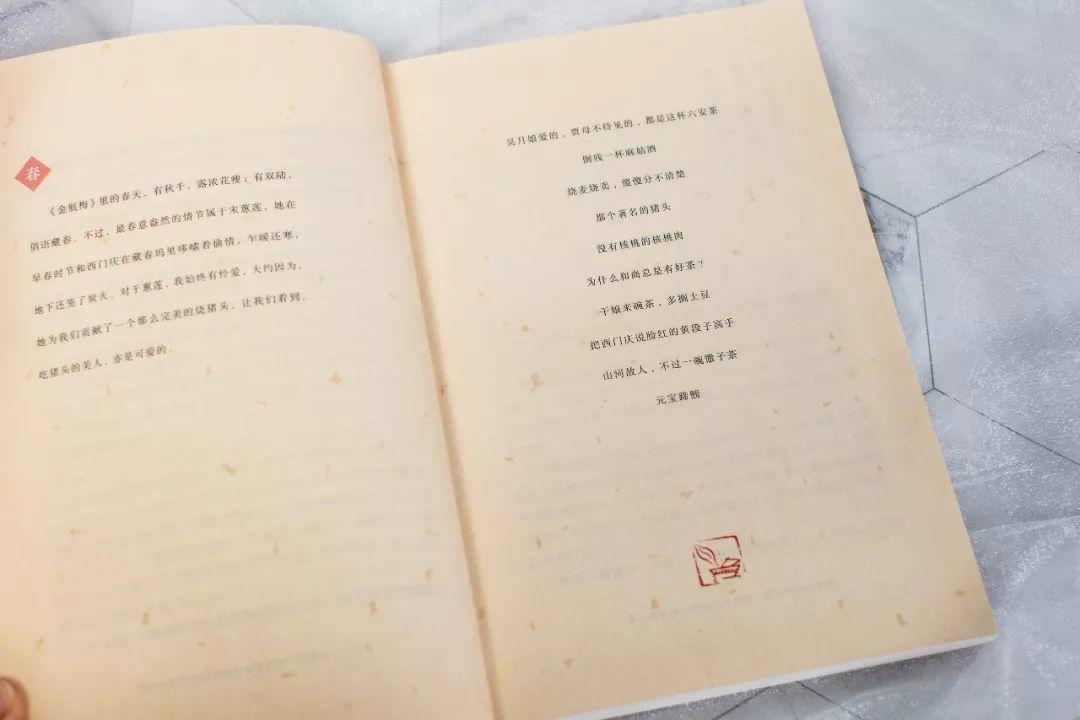 春
《金瓶梅》里的春天，有秋千，露浓花瘦；有双陆，
俏语藏春。不过，最春意盎然的情节属于宋蕙莲，她在
早春时节和西门庆在藏春坞里哆嗦着偷情，乍暖还寒，
地下还笼了炭火。对于蕙莲，我始终有怜爱，大约因为，
她为我们贡献了一个那么完美的烧猪头，让我们看到，
吃猪头的美人，亦是可爱的。
吴月娘爱的、贾母不待见的，都是这杯六安茶
倒残一杯麻姑酒
烧麦烧卖，傻傻分不清楚
那个著名的猪头
没有核桃的核桃肉
为什么和尚总是有好茶？
干娘来碗茶，多搁土豆
把西门庆说脸红的黄段子高手
山河故人，不过一碗馓子茶
元宝蹄髈